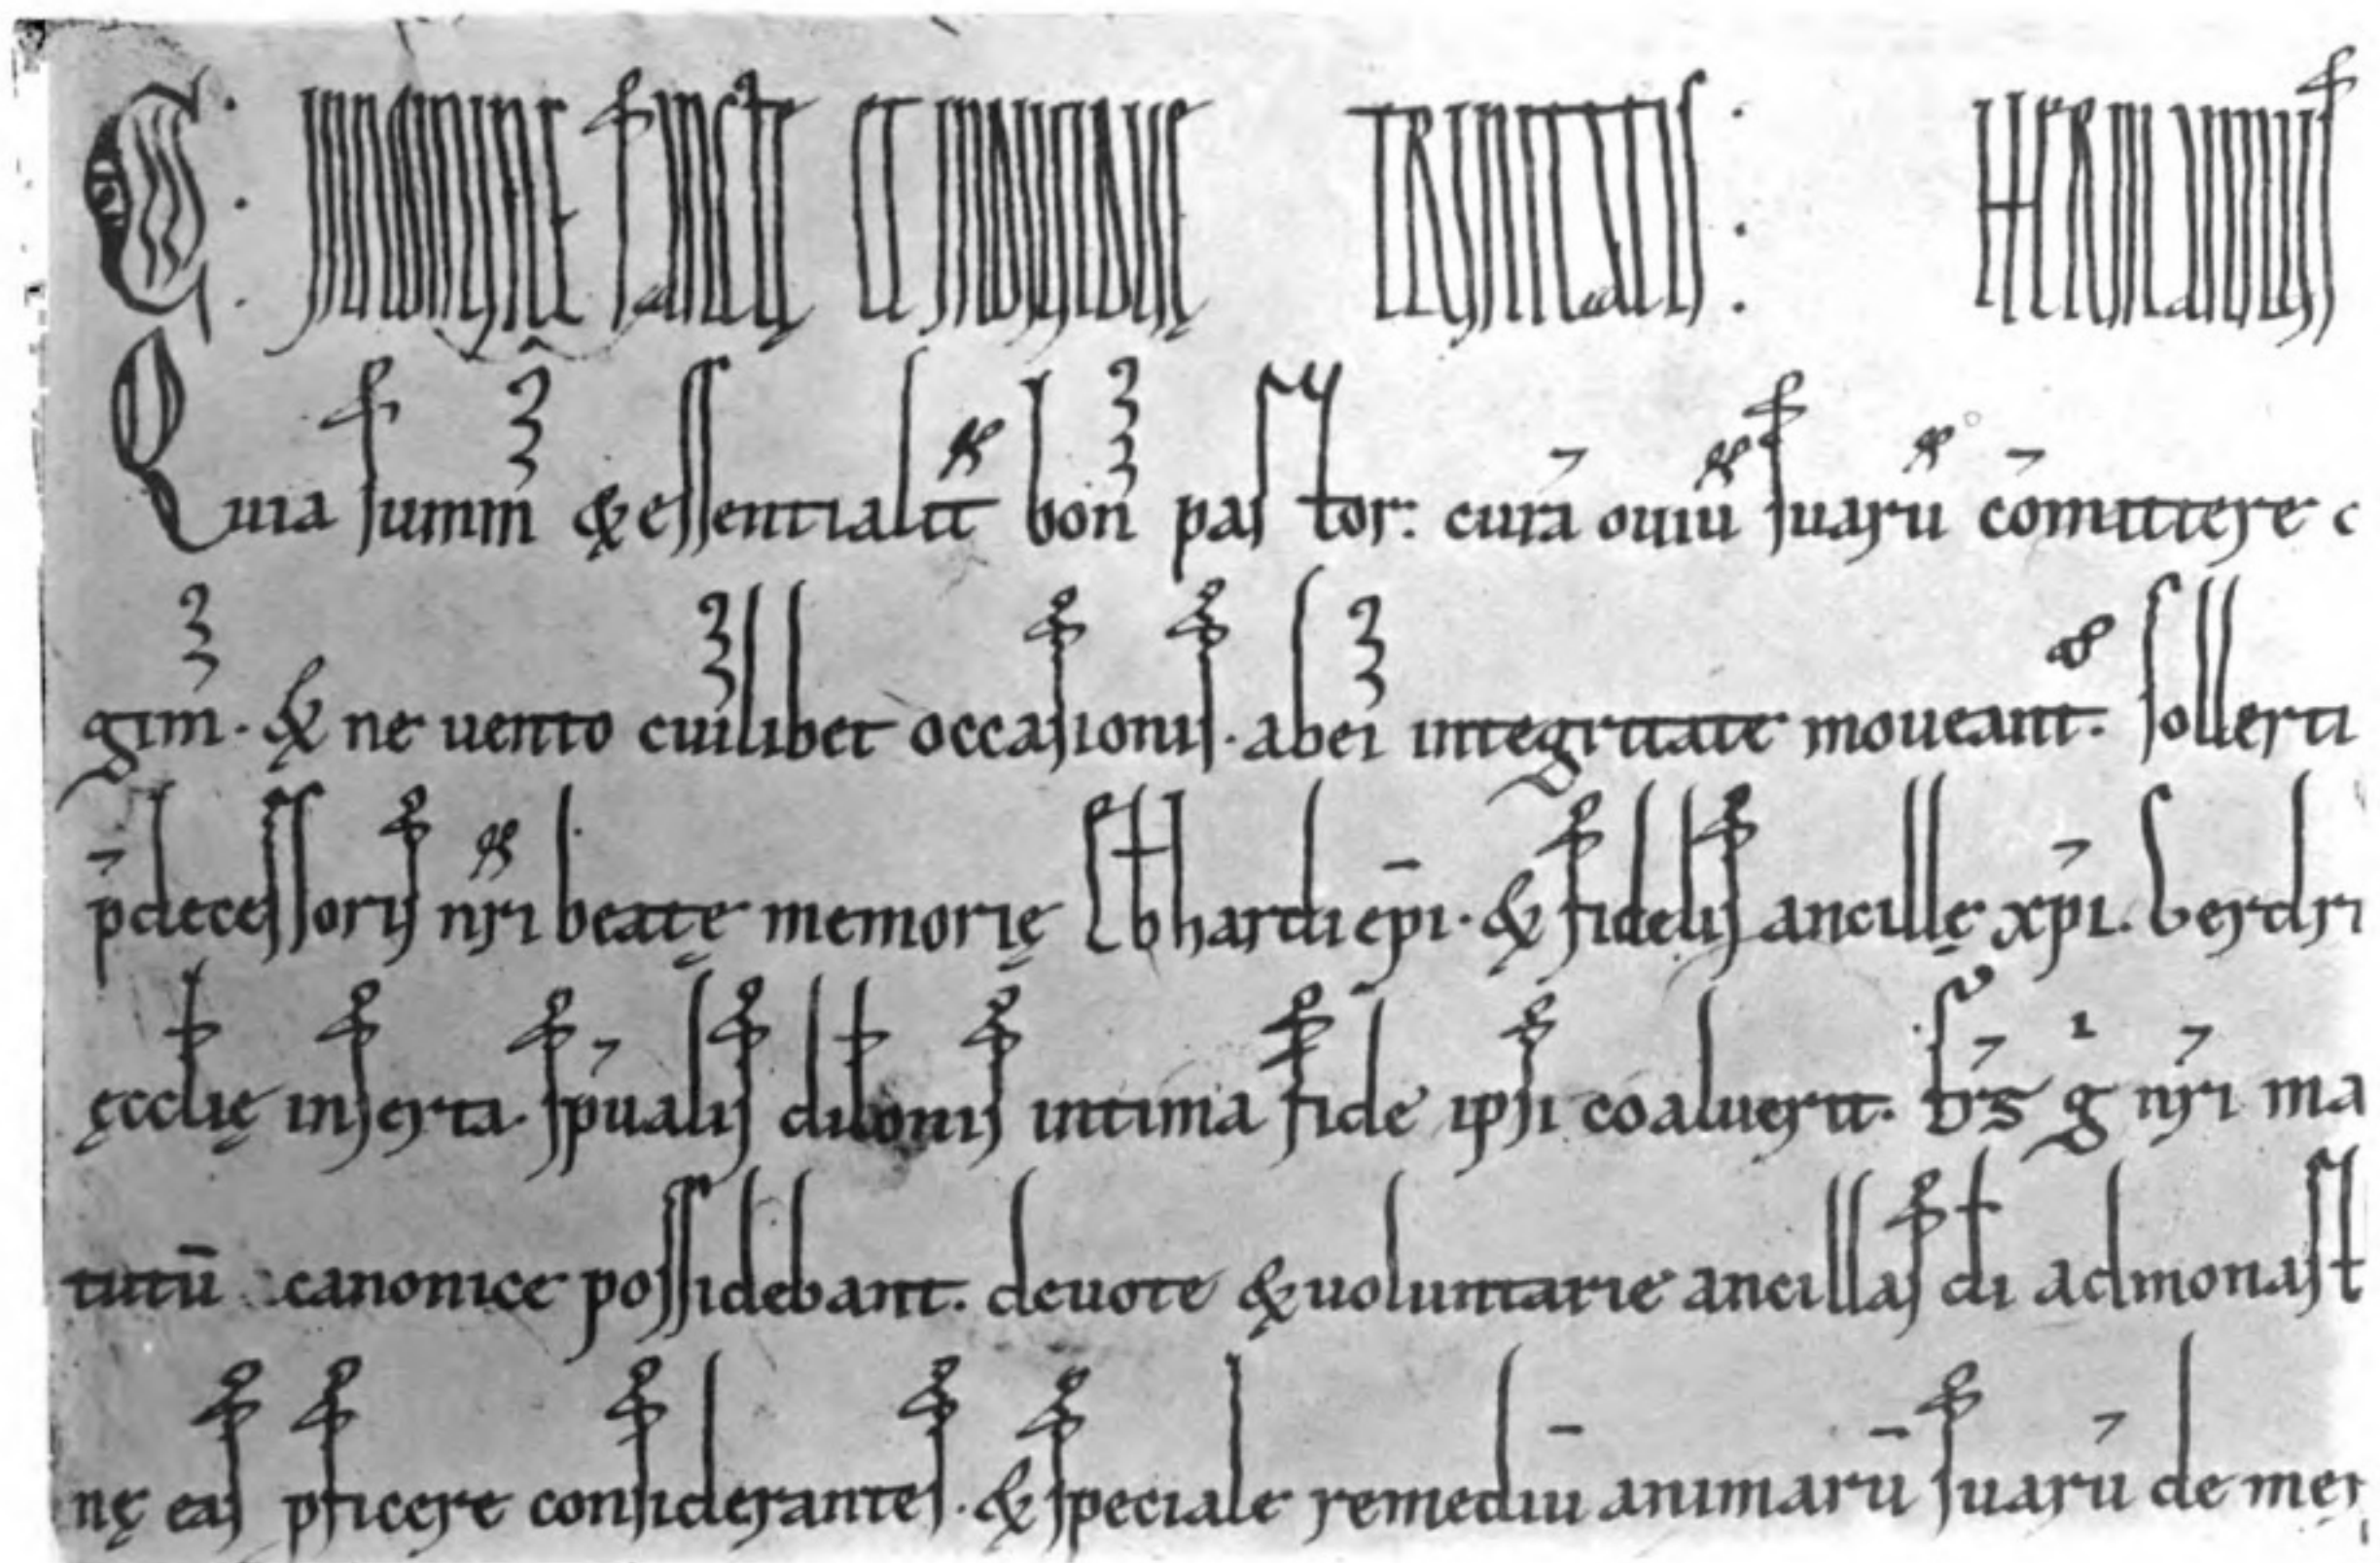 C. IN NOMINE SANCTE ET INDIVIDUE TRINITATIS: HERMANNUS
Quia summ̃ & essentialit̃ bon̄ pastor: curā ouiū suarū cōmittere
gim̃. & ne uento cuilibet occasionis. ab ei integritate moueant̃. sollerti
p̄decessoris nr̄i beatę memorię Ebhardi ep̄i. & fidelis ancillę xp̄i.
ęcclię inserta. sp̄ualis dilt̄onis intima fide ipsi coaluerit. nr̄i ma
tutū canonice possidebant. deuote & uoluntarie ancillas di ad monast
nę eas p̄ficere considerantes. & speciale remediū animarū suarū de mer